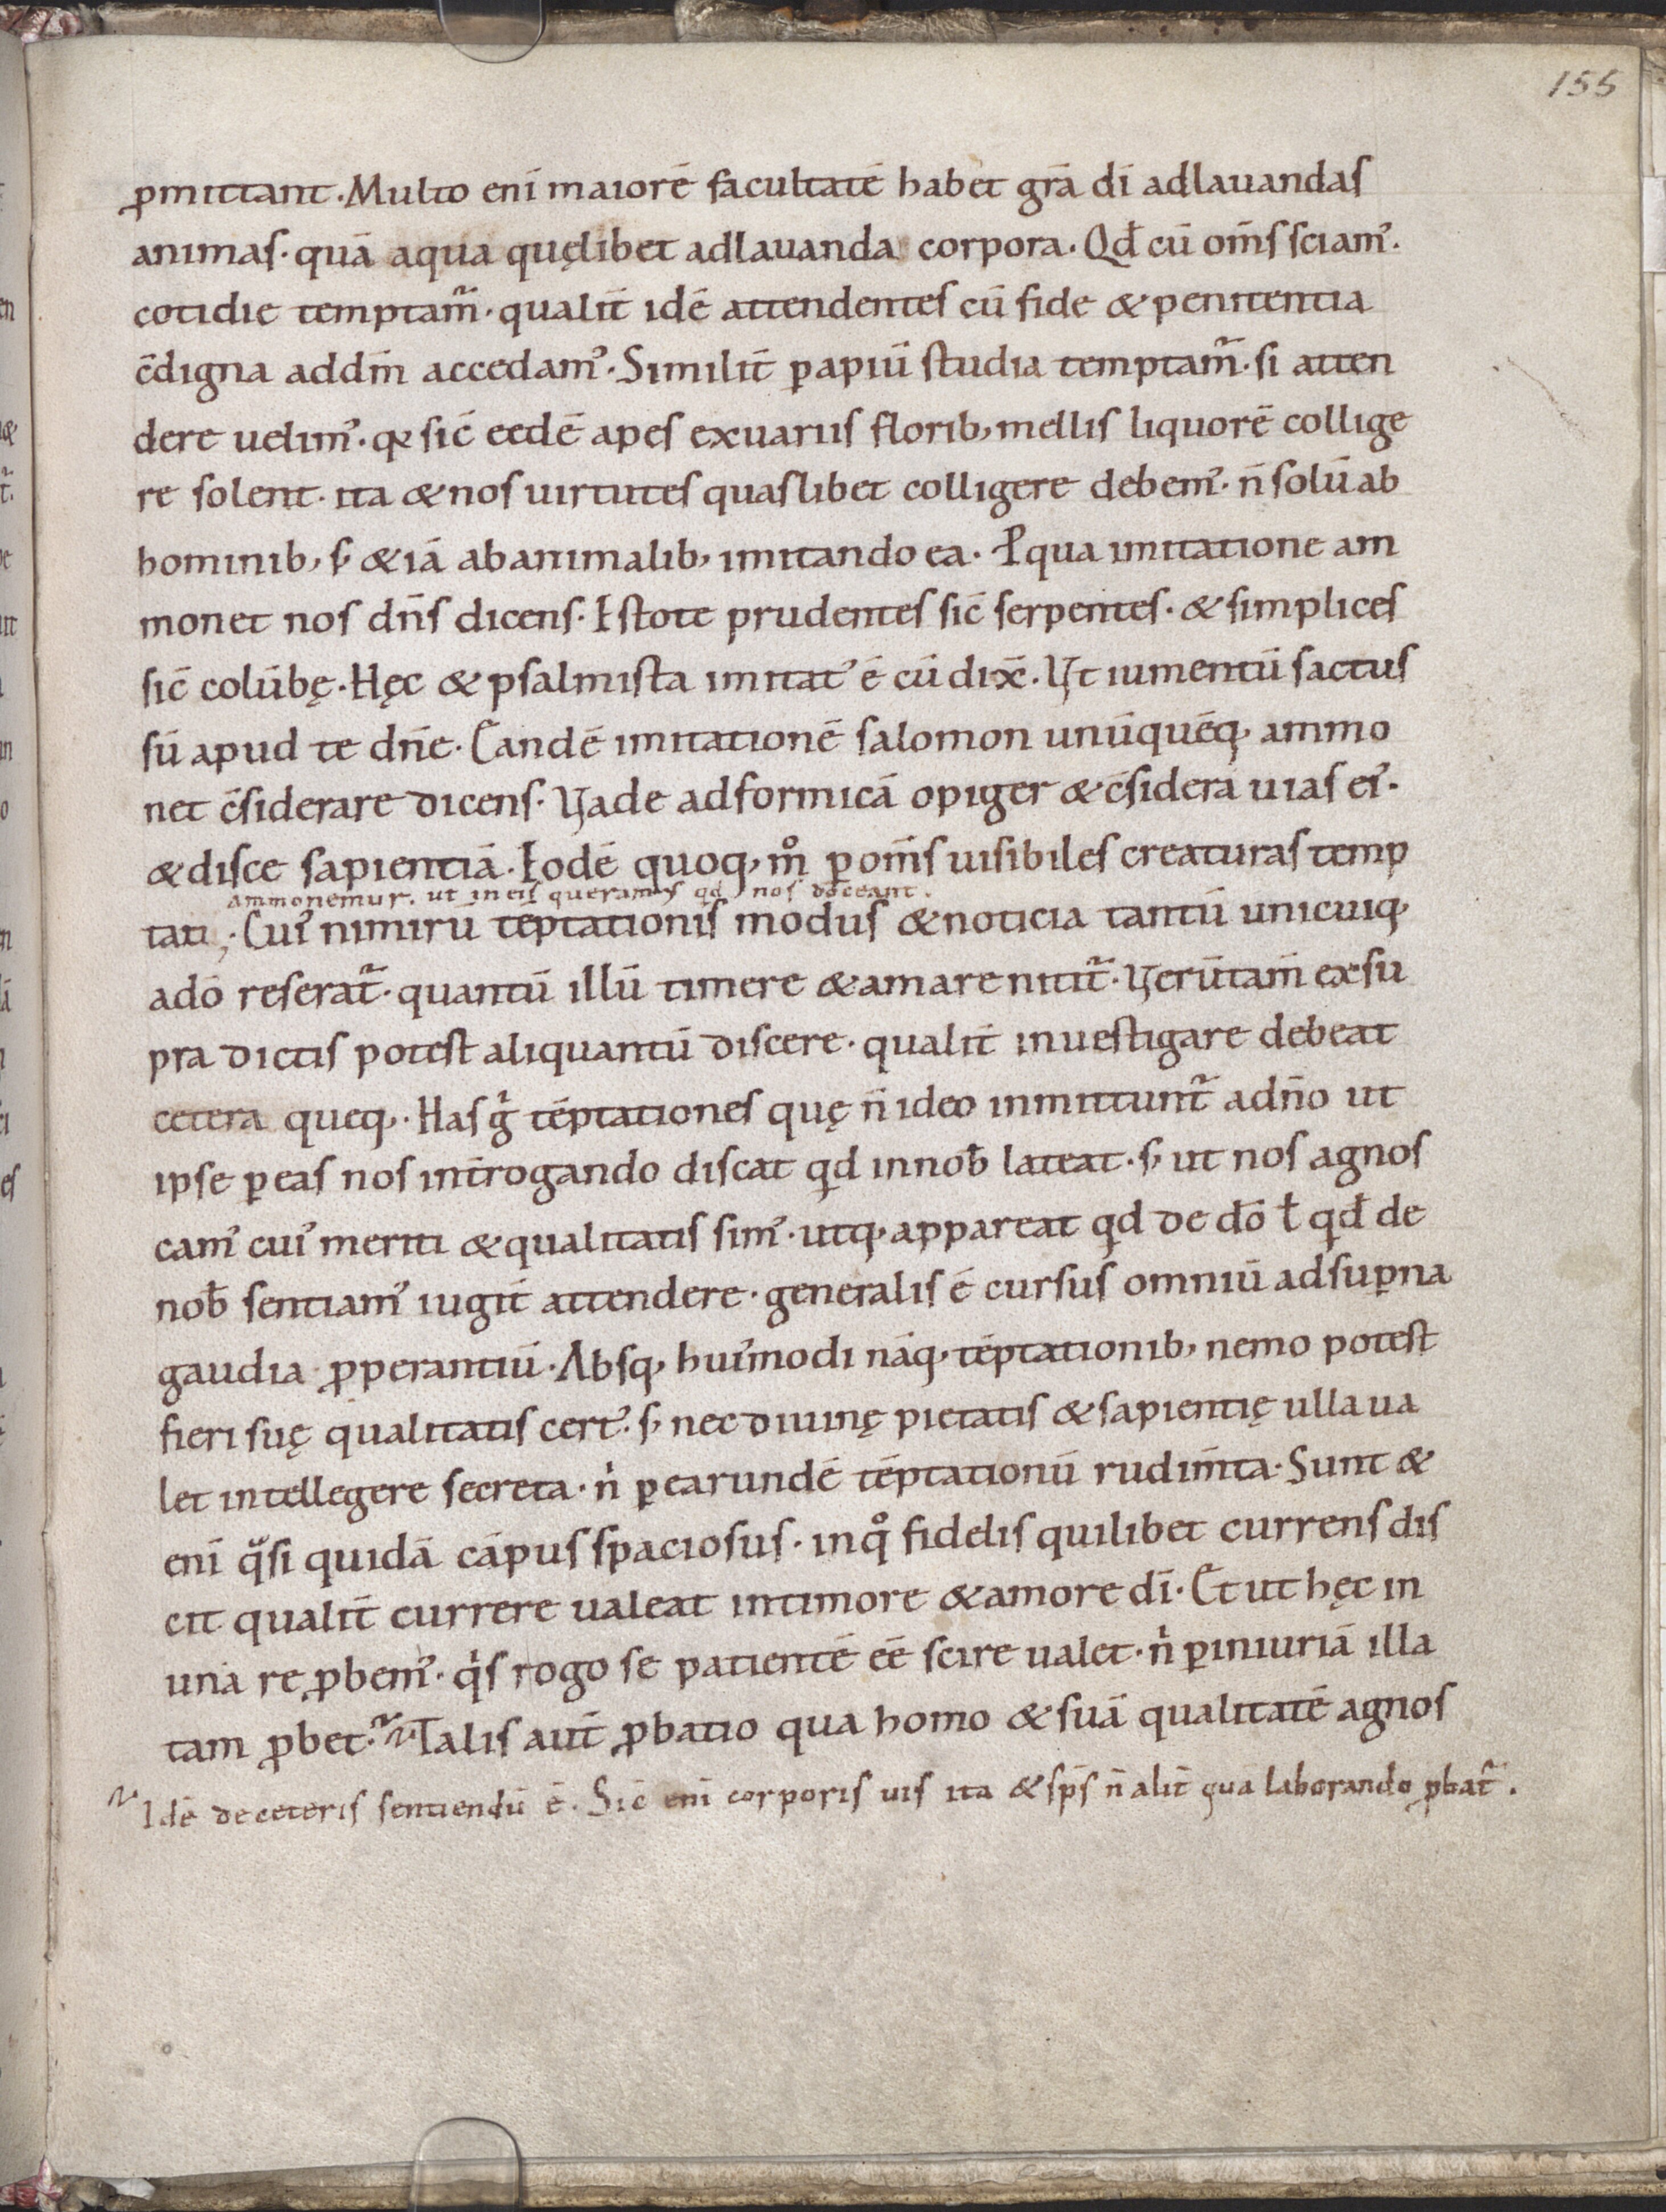 155
ꝓmittant. Multo enī maiorē facultatē habet gr̄a dī adlauandas
animas. quā aqua quęlibet adlauanda corpora. Qd̄ cū om̄s sciam᾽.
cotidie temptam̄. qualit̄ idē attendentes cū fide & penitentia
c̄digna addm̄ accedam᾽. Similit̄ ꝑapiū studia temptam̄. si atten
dere uelim᾽. qꝫ sic̄ eędē apes exuariis florib; mellis liquorē collige
re solent. ita & nos uirtutes quaslibet colligere debem᾽. n̄ solū ab
hominib; s; & iā abanimalib; imitando ea. Ꝑqua imitatione am
monet nos dn̄s dicens. Estote prudentes sic̄ serpentes. & simplices
sic̄ colūbę. Hęc & psalmista imitat᾽ ē cū dix̄. Vt iumentū factus
sū apud te dn̄e. Eandē imitationē salomon unūquēq; ammo
net c̄siderare dicens. Vade adformicā opiger & c̄sidera uias ei᾽.
& disce sapientiā. Eodē quoq; m̊ ꝑom̄s uisibiles creaturas temp
ammonemur. ut in eis queramus qd nos doceant.
tati;. Cui᾽ nimirū tēptationis modus & noticia tantū unicuiq;
adō reserat̄. quantū illū timere & amare nitit̄. Verūtam̄ exsu
pra dictis potest aliquantū discere. qualit̄ inuestigare debeat
cetera queq;. Has g̊ tēptationes quę n̄ ideo inmittunt̄ adn̄o ut
ipse ꝑeas nos int̄rogando discat qd innob̄ lateat. s; ut nos agnos
cam᾽ cui᾽ meriti & qualitatis sim᾽. utq; appareat qd de dō ł qd̄ de
nob̄ sentiam᾽ iugit̄ attendere. generalis ē cursus omniū adsuꝑna
gaudia ꝓperantiū. Absq; hui᾽modi nāq; tēptationib; nemo potest
fieri suę qualitatis cert᾽. s; nec diuinę pietatis & sapientię ulla ua
let intellegere secreta. n̍ ꝑearundē tēptationū rudim̄ta. Sunt &
enī qͣsi quidā cāpus spaciosus. inq̊ fidelis quilibet currens dis
cit qualit̄ currere ualeat intimore & amore dī. Et ut hęc in
una re ꝓbem᾽. q̍s rogo se patientē eē scire ualet. n̍ ꝑiniuriā illa
tam ꝓbet᷑. Talis aut̄ ꝓbatio qua homo & suā qualitatē agnos
Idē de ceteris sentiendū ē. Sic̄ enī corporis uis ita & sp̄s n̄ alit̄ quā laborando ꝓbat̄.